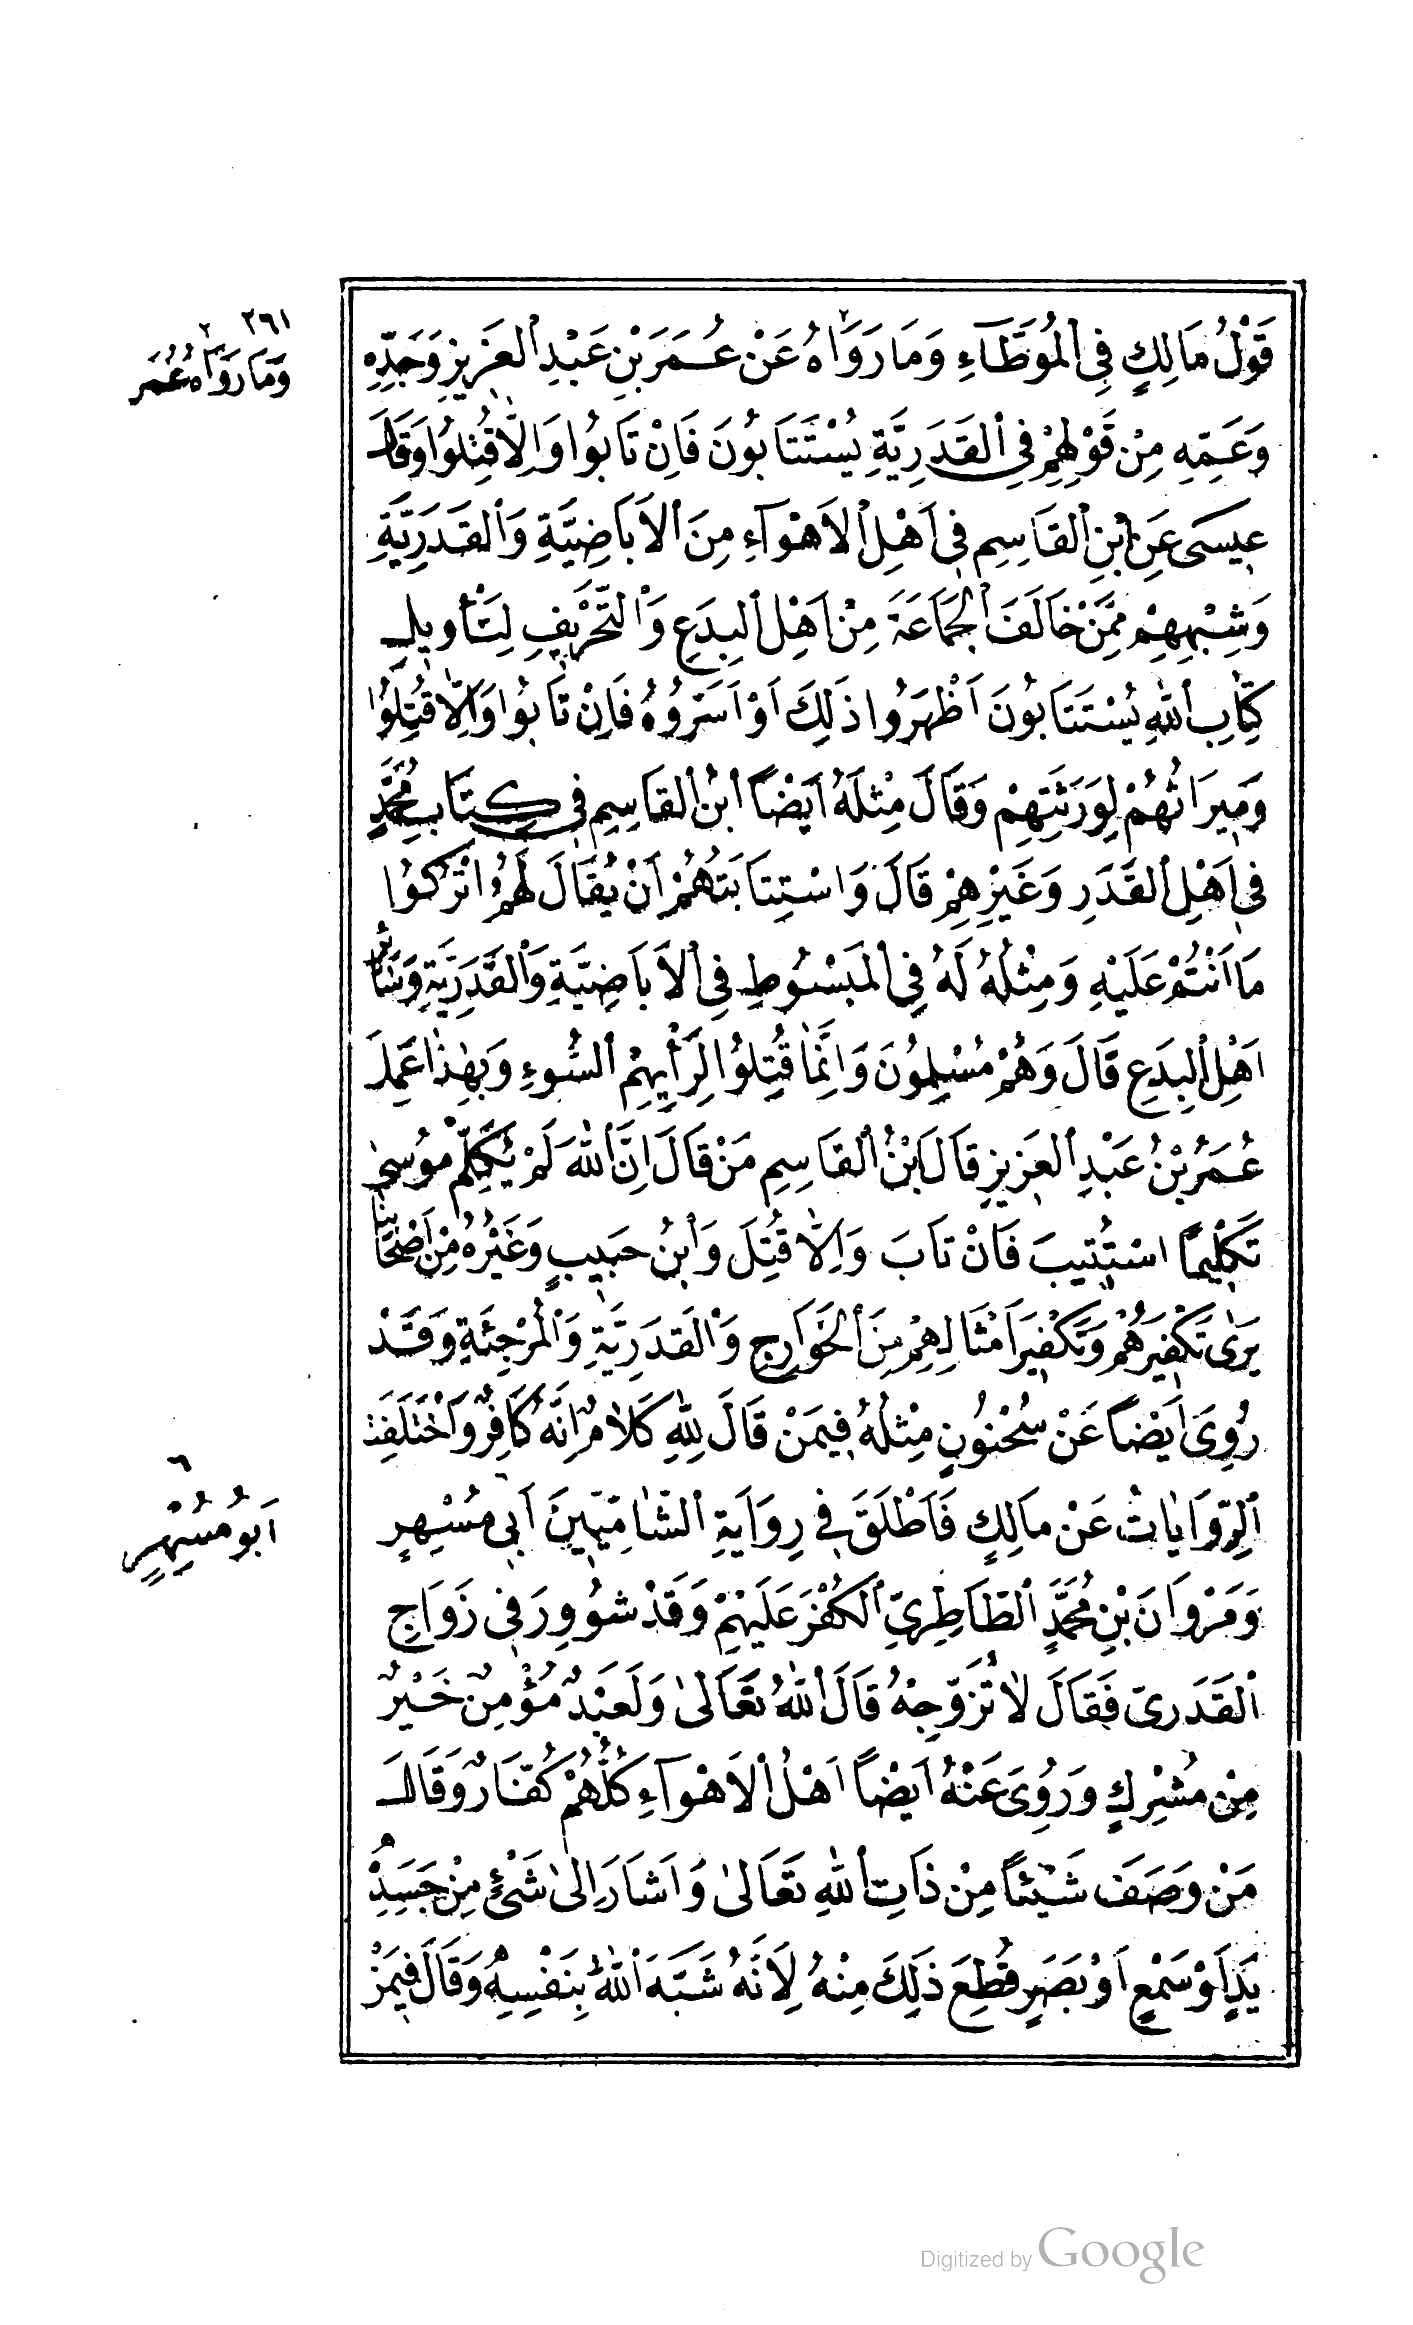 ٢٦١
٢
وَمَا رَوَاهُ عُمَرَ
قَوْلُ مَالِكٍ فِى الْمُوَطَّاءِ وَمَا رَوَاهُ عَنْ عُمَرَ بْنِ عَبْدِ الْعَزِيزِ وَجَدِّهِ
وَعَمِّهِ مِنْ قَوْلِهِمْ فِى الْقَدَرِيَّةِ يُسْتَتَابُونَ فَاِنْ تَابُوا وَاِلَّا قُتِلُوا وَقَالَ
عِيسَى عَنِ ابْنِ الْقَاسِمِ فِى اَهْلِ الْاَهْوَآءِ مِنَ الْاَبَاضِيَّةِ وَالْقَدَرِيَّةِ
وَشِبْهِهِمْ مِمَّنْ خَالَفَ الْجَمَاعَةَ مِنْ اَهْلِ الْبِدَعِ وَالتَّحْرِيفِ لِتَأْوِيلِ
كِتَابِ اللّٰهِ يُسْتَتَابُونَ اَظْهَرُوا ذَلِكَ اَوْ اَسَرُّوهُ فَاِنْ تَابُوا وَاِلَّا قُتِلُوا
وَمِيرَاثُهُمْ لِوَرَثَتِهِمْ وَقَالَ مِثْلَهُ اَيْضاً ابْنُ الْقَاسِمِ فِى كِتَابِ مُحَمَّدٍ
فِى اَهْلِ الْقَدَرِ وَغَيْرِهِمْ قَالَ وَاسْتِتَابَتُهُمْ اَنْ يُقَالَ لَهُمُ اتْرُكُوا
مَا اَنْتُمْ عَلَيْهِ وَمِثْلُهُ لَهُ فِى الْمَبْسُوطِ فِى الْاَبَاضِيَّةِ وَالْقَدَرِيَّةِ وَسَائِرِ
اَهْلِ الْبِدَعِ قَالَ وَهُمْ مُسْلِمُونَ وَاِنَّمَا قُتِلُوا لِرَأْيِهِمُ السُّوءِ وَبِهٰذَا عَمِلَ
عُمَرُ بْنُ عَبْدِ الْعَزِيزِ قَالَ ابْنُ الْقَاسِمِ مَنْ قَالَ اِنَّ اللّٰهَ لَمْ يُكَلِّمْ مُوسٰى
تَكْلِيمًا اسْتُتِيبَ فَاِنْ تَابَ وَاِلَّا قُتِلَ وَابْنُ حَبِيبٍ وَغَيْرُهُ مِنْ اَصْحَابِنَا
يَرٰى تَكْفِيرَهُمْ وَتَكْفِيرَ اَمْثَالِهِمْ مِنَ الْخَوَارِجِ وَالْقَدَرِيَّةِ وَالْمُرْجِئَةِ وَقَدْ
رُوِىَ اَيْضاً عَنْ سُحْنُونٍ مِثْلُهُ فِيمَنْ قَالَ لِلّٰهِ كَلَامٌ اِنَّهُ كَافِرٌ وَاخْتَلَفَتِ
الرِّوَايَاتُ عَنْ مَالِكٍ فَاَطْلَقَ فِى رِوَايَةِ الشَّامِيِّينَ اَبِى مُسْهِرٍ
وَمَرْوَانَ بْنِ مُحَمَّدٍ الطَّاطِرِىِّ الْكُفْرَ عَلَيْهِمْ وَقَدْ شُووِرَ فِى زَوَاجِ
الْقَدَرِىِّ فَقَالَ لَا تُزَوِّجْهُ قَالَ اللّٰهُ تَعَالٰى وَلَعَبْدٌ مُؤْمِنٌ خَيْرٌ
مِنْ مُشْرِكٍ وَرُوِىَ عَنْهُ اَيْضاً اَهْلُ الْاَهْوَآءِ كُلُّهُمْ كُفَّارٌ وَقَالَ
مَنْ وَصَفَ شَيْئاً مِنْ ذَاتِ اللّٰهِ تَعَالٰى وَاَشَارَ اِلٰى شَىْءٍ مِنْ جَسَدِهِ
يَدٍ اَوْ سَمْعٍ اَوْ بَصَرٍ قُطِعَ ذَلِكَ مِنْهُ لِاَنَّهُ شَبَّهَ اللّٰهَ بِنَفْسِهِ وَقَالَ فِيمَنْ
٦
اَبُو مُسْهِرٍ
Digitized by Google